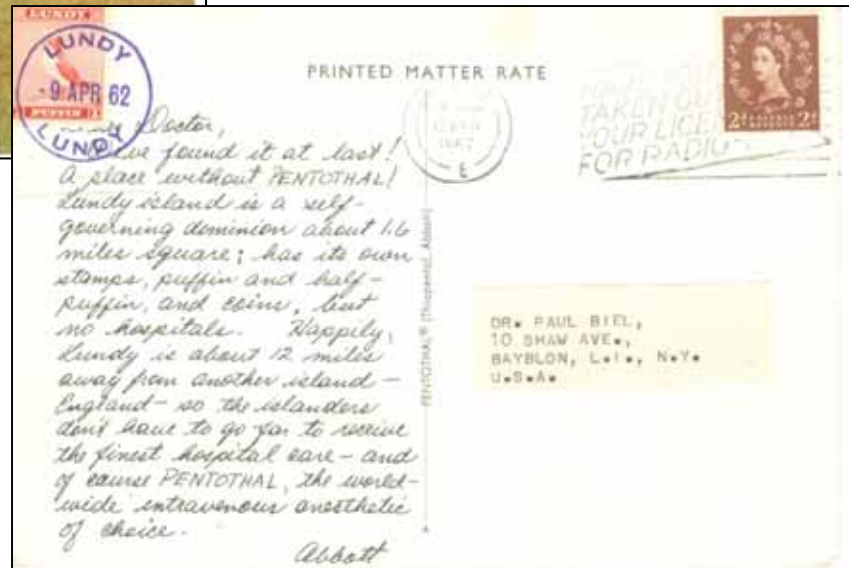 LUNDY
PUFFIN
LUNDY
9 APR 62
LUNDY
PRINTED MATTER RATE
1962
E
TAKEN OUT
YOUR LICE
FOR RADIO
2D 2D
Doctor,
We've found it at last!
A place without PENTOTHAL!
Lundy island is a self-
governing dominion about 1.6
miles square; has its own
stamps, puffin and half-
puffin, and coins, but
no hospitals. Happily,
Lundy is about 12 miles
away from another island —
England — so the islanders
don't have to go far to receive
the finest hospital care — and
of course PENTOTHAL, the world-
wide intravenous anesthetic
of choice.
Abbott
PENTOTHAL® (Thiopental, Abbott)
DR. PAUL BIEL,
10 SHAW AVE.,
BAYBLON, L.I., N.Y.
U.S.A.